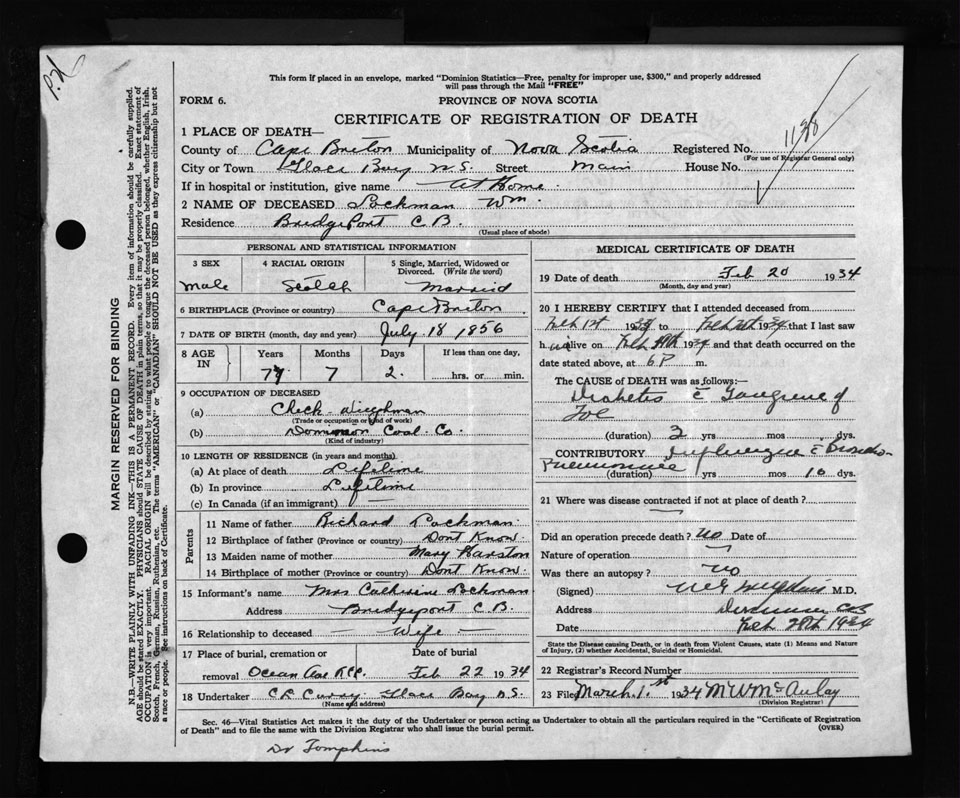 P.H
This form if placed in an envelope, marked "Dominion Statistics—Free, penalty for improper use, $300," and properly addressed
will pass through the Mail "FREE"
FORM 6.
PROVINCE OF NOVA SCOTIA
CERTIFICATE OF REGISTRATION OF DEATH
1188
1 PLACE OF DEATH—
County of Cape Breton Municipality of Nova Scotia Registered No.
(For use of Registrar General only)
City or Town Glace Bay N.S. Street Main House No.
If in hospital or institution, give name At Home
2 NAME OF DECEASED Lockman Wm.
Residence Bridgeport C.B.
(Usual place of abode)
PERSONAL AND STATISTICAL INFORMATION
3 SEX 4 RACIAL ORIGIN 5 Single, Married, Widowed or Divorced. (Write the word)
Male Scotch Married
6 BIRTHPLACE (Province or country) Cape Breton
7 DATE OF BIRTH (month, day and year) July 18 1856
8 AGE IN Years Months Days If less than one day,
77 7 2. hrs. or min.
9 OCCUPATION OF DECEASED
(a) Check-Weighman
(Trade or occupation or kind of work)
(b) Dominion Coal Co.
(Kind of industry)
10 LENGTH OF RESIDENCE (in years and months)
(a) At place of death Lifetime
(b) In province Lifetime
(c) In Canada (if an immigrant)
Parents
11 Name of father Richard Lockman
12 Birthplace of father (Province or country) Dont Know.
13 Maiden name of mother Mary
14 Birthplace of mother (Province or country) Dont Know.
15 Informant's name Mrs Catherine Lockman
Address Bridgeport C.B.
16 Relationship to deceased — Wife —
17 Place of burial, cremation or removal Date of burial
Feb 22 1934
18 Undertaker C.R. Curry Glace Bay N.S.
(Name and address)
MEDICAL CERTIFICATE OF DEATH
19 Date of death Feb 20 1934
(Month, day and year)
20 I HEREBY CERTIFY that I attended deceased from
Feb 1st 1934 to Feb 20th 1934 that I last saw
him alive on Feb 1934 and that death occurred on the
date stated above, at 6 P m.
The CAUSE OF DEATH was as follows:—
Diabetes c Gangrene of
Toe
(duration) 2 yrs mos dys.
CONTRIBUTORY Influenza c Broncho-
Pneumonia (duration) yrs mos 10 dys.
21 Where was disease contracted if not at place of death?
Did an operation precede death? No Date of
Nature of operation
Was there an autopsy? No
(Signed) M.D.
Address Dominion C.B
Date Feb 28th 1934
State the Disease causing Death, or in death from Violent Causes, state (1) Means and Nature of Injury, (2) whether Accidental, Suicidal or Homicidal.
22 Registrar's Record Number
23 Filed March 1st 1934 M W McAulay
(Division Registrar)
Sec. 46—Vital Statistics Act makes it the duty of the Undertaker or person acting as Undertaker to obtain all the particulars required in the "Certificate of Registration
of Death" and to file the same with the Division Registrar who shall issue the burial permit.
(OVER)
Dr Tompkins
MARGIN RESERVED FOR BINDING
N.B.—WRITE PLAINLY WITH UNFADING INK—THIS IS A PERMANENT RECORD. Every item of information should be carefully supplied.
AGE should be stated EXACTLY. PHYSICIANS should STATE CAUSE OF DEATH in plain terms, so that it may be properly classified. Exact statement of
OCCUPATION is very important. RACIAL ORIGIN will be described by stating to what people or tongue the deceased person belonged, whether English, Irish,
Scotch, French, German, Russian, Ruthenian, etc. The terms "AMERICAN" or "CANADIAN" SHOULD NOT BE USED as they express citizenship but not
a race or people. See instructions on back of Certificate.